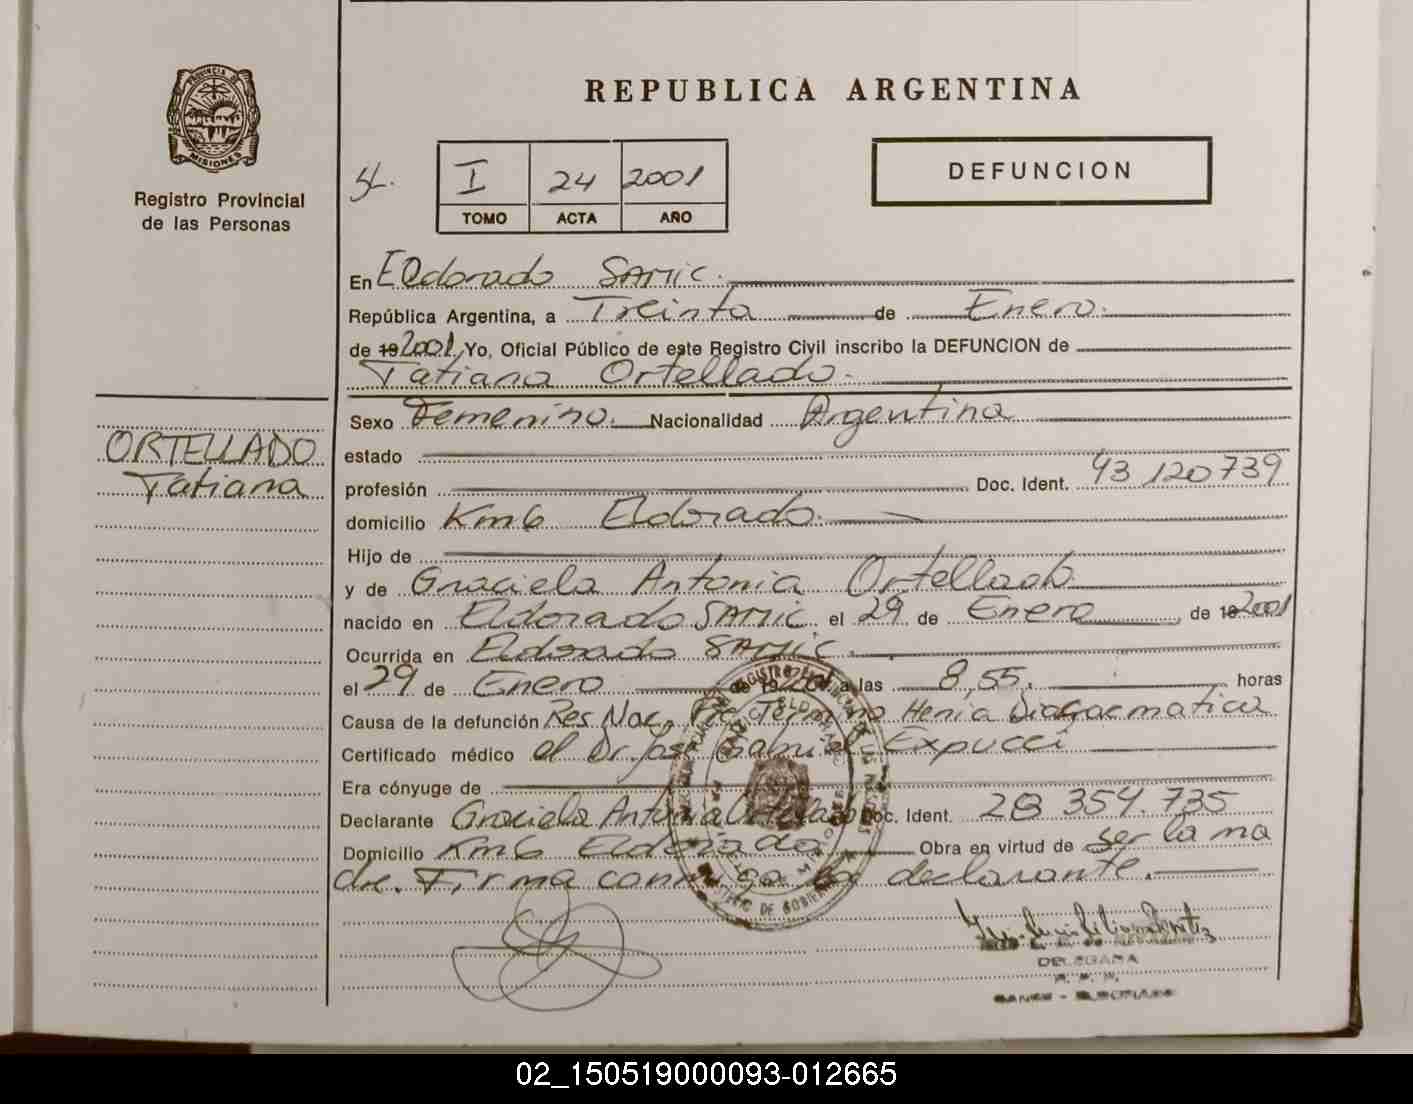 PROVINCIA DE
MISIONES
Registro Provincial
de las Personas
ORTELLADO
Tatiana
REPUBLICA ARGENTINA
I 24 2001
TOMO ACTA AÑO
DEFUNCION
En Eldorado SAMIC.
República Argentina, a Treinta de Enero.
de 19 2001, Yo, Oficial Público de este Registro Civil inscribo la DEFUNCION de
Tatiana Ortellado.
Sexo Femenino. Nacionalidad Argentina
estado
profesión Doc. Ident. 43 120 739
domicilio Km 6 Eldorado.
Hijo de
y de Graciela Antonia Ortellado
nacido en Eldorado SAMIC el 29 de Enero de 19 2001
Ocurrida en Eldorado SAMIC.
el 29 de Enero de 19 2001 a las 8,55. horas
Causa de la defunción Res. Nac. Pre Termino Hernia Diafragmatica
Certificado médico el Dr. José Gabriel Expucci
Era cónyuge de
Declarante Graciela Antonia Ortellado Doc. Ident. 28 354.735
Domicilio Km 6 Eldorado Obra en virtud de ser la ma
dre. Firma conmigo la declarante.
DELEGADA
02_150519000093-012665